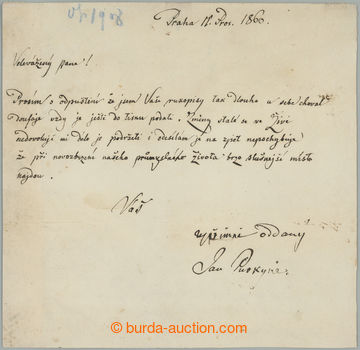 Praha 11. Pros. 1860.
Velevážený pane!
Prosím o odpuštění že jsem Vaše rukopisy tak dlouho u sebe choval
doufaje vždy je ještě do tisku podati. Změny stalé se ve Živě
nedovolují mi déle je podržeti i odesílám je na zpět nepochybuje
že při novozbuzení našeho průmyslného života brzo slušnější místo
najdou.
Váš
upřímně oddaný
Jan Purkyně.
© burda-auction.com